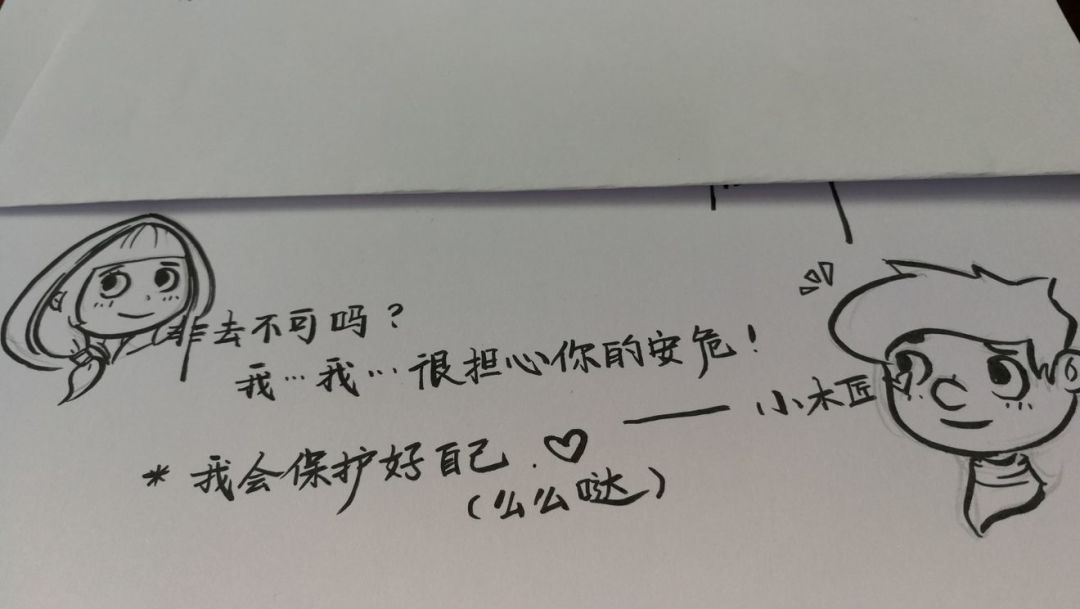 非去不可吗？
我…我…很担心你的安危！
—— 小木匠
* 我会保护好自己.♡
(么么哒)